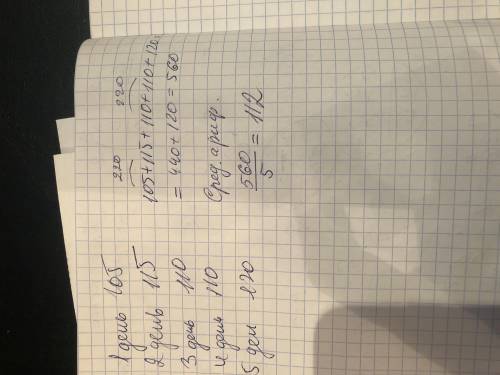 1 день 105
2 день 115
3 день 110
4 день 110
5 ден 120
220 220
105+115+110+110+120=
= 440+120=560
Сред. ариф.
560
5
= 112